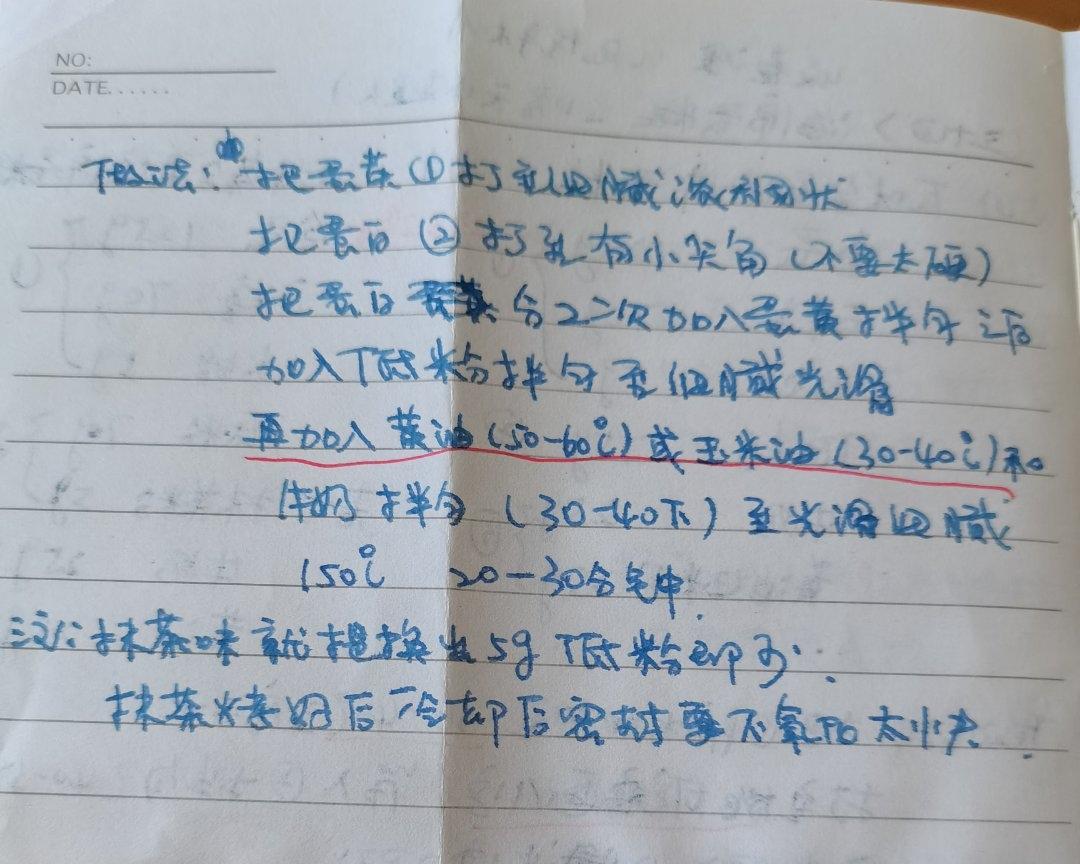 NO:
DATE......
做法: 把蛋黄① 打至细腻浓稠状
把蛋白② 打至有小尖角(不要太硬)
把蛋白 分2三次加入蛋黄拌匀之后
加入低粉拌匀至细腻光滑
再加入黄油(50-60℃)或玉米油(30-40℃)和
牛奶拌匀(30-40下)至光滑细腻
150℃ 20-30分钟.
注: 抹茶味就提换出5g低粉即可.
抹茶烤好后冷却后密封要不氧化太快.